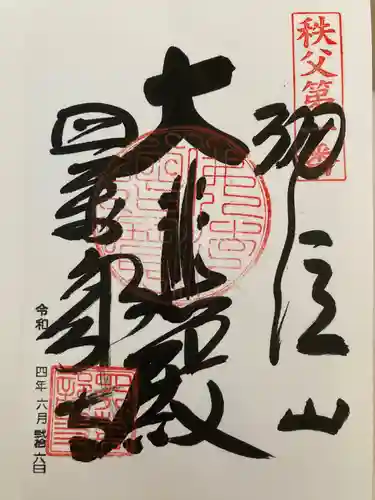 秩父第一番
山
大悲殿
四萬部寺
令和四年六月弐拾六日